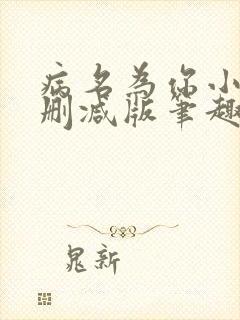 病名为你小
删减版笔趣
晁新